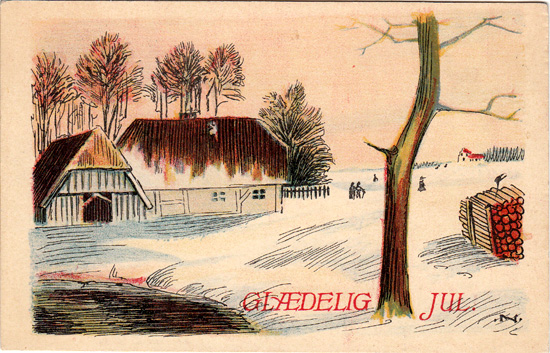 GLÆDELIG JUL.